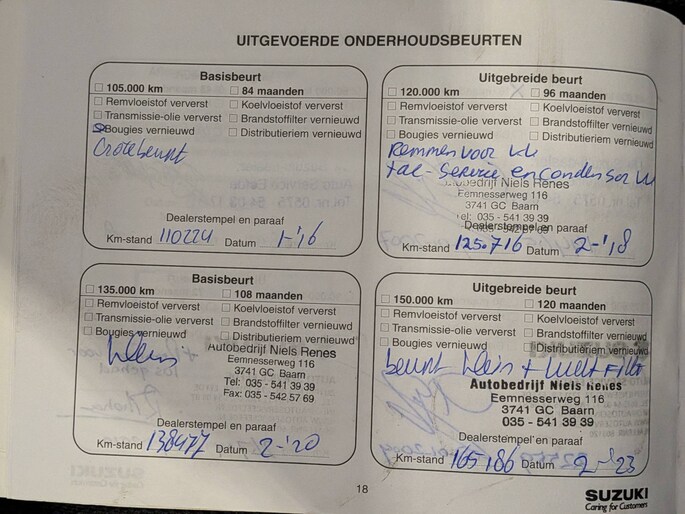 UITGEVOERDE ONDERHOUDSBEURTEN
Basisbeurt
105.000 km 84 maanden
Remvloeistof ververst Koelvloeistof ververst
Transmissie-olie ververst Brandstoffilter vernieuwd
Bougies vernieuwd Distributieriem vernieuwd
Grote beurt
Dealerstempel en paraaf
Km-stand 110224 Datum 1-'16
Uitgebreide beurt
120.000 km 96 maanden
Remvloeistof ververst Koelvloeistof ververst
Transmissie-olie ververst Brandstoffilter vernieuwd
Bougies vernieuwd Distributieriem vernieuwd
Remmen voor
service en condensor
Autobedrijf Niels Renes
Eemnesserweg 116
3741 GC Baarn
Tel: 035 - 541 39 39
Dealerstempel en paraaf
Km-stand 125.716 Datum 2-'18
Basisbeurt
135.000 km 108 maanden
Remvloeistof ververst Koelvloeistof ververst
Transmissie-olie ververst Brandstoffilter vernieuwd
Bougies vernieuwd Distributieriem vernieuwd
klein
Autobedrijf Niels Renes
Eemnesserweg 116
3741 GC Baarn
Tel: 035 - 541 39 39
Fax: 035 - 542 57 69
Dealerstempel en paraaf
Km-stand 138477 Datum 2-'20
Uitgebreide beurt
150.000 km 120 maanden
Remvloeistof ververst Koelvloeistof ververst
Transmissie-olie ververst Brandstoffilter vernieuwd
Bougies vernieuwd Distributieriem vernieuwd
beurt klein + luchtfilter
Autobedrijf Niels Renes
Eemnesserweg 116
3741 GC Baarn
035 - 541 39 39
Dealerstempel en paraaf
Km-stand 165186 Datum 2-'23
18
SUZUKI
Caring for Customers